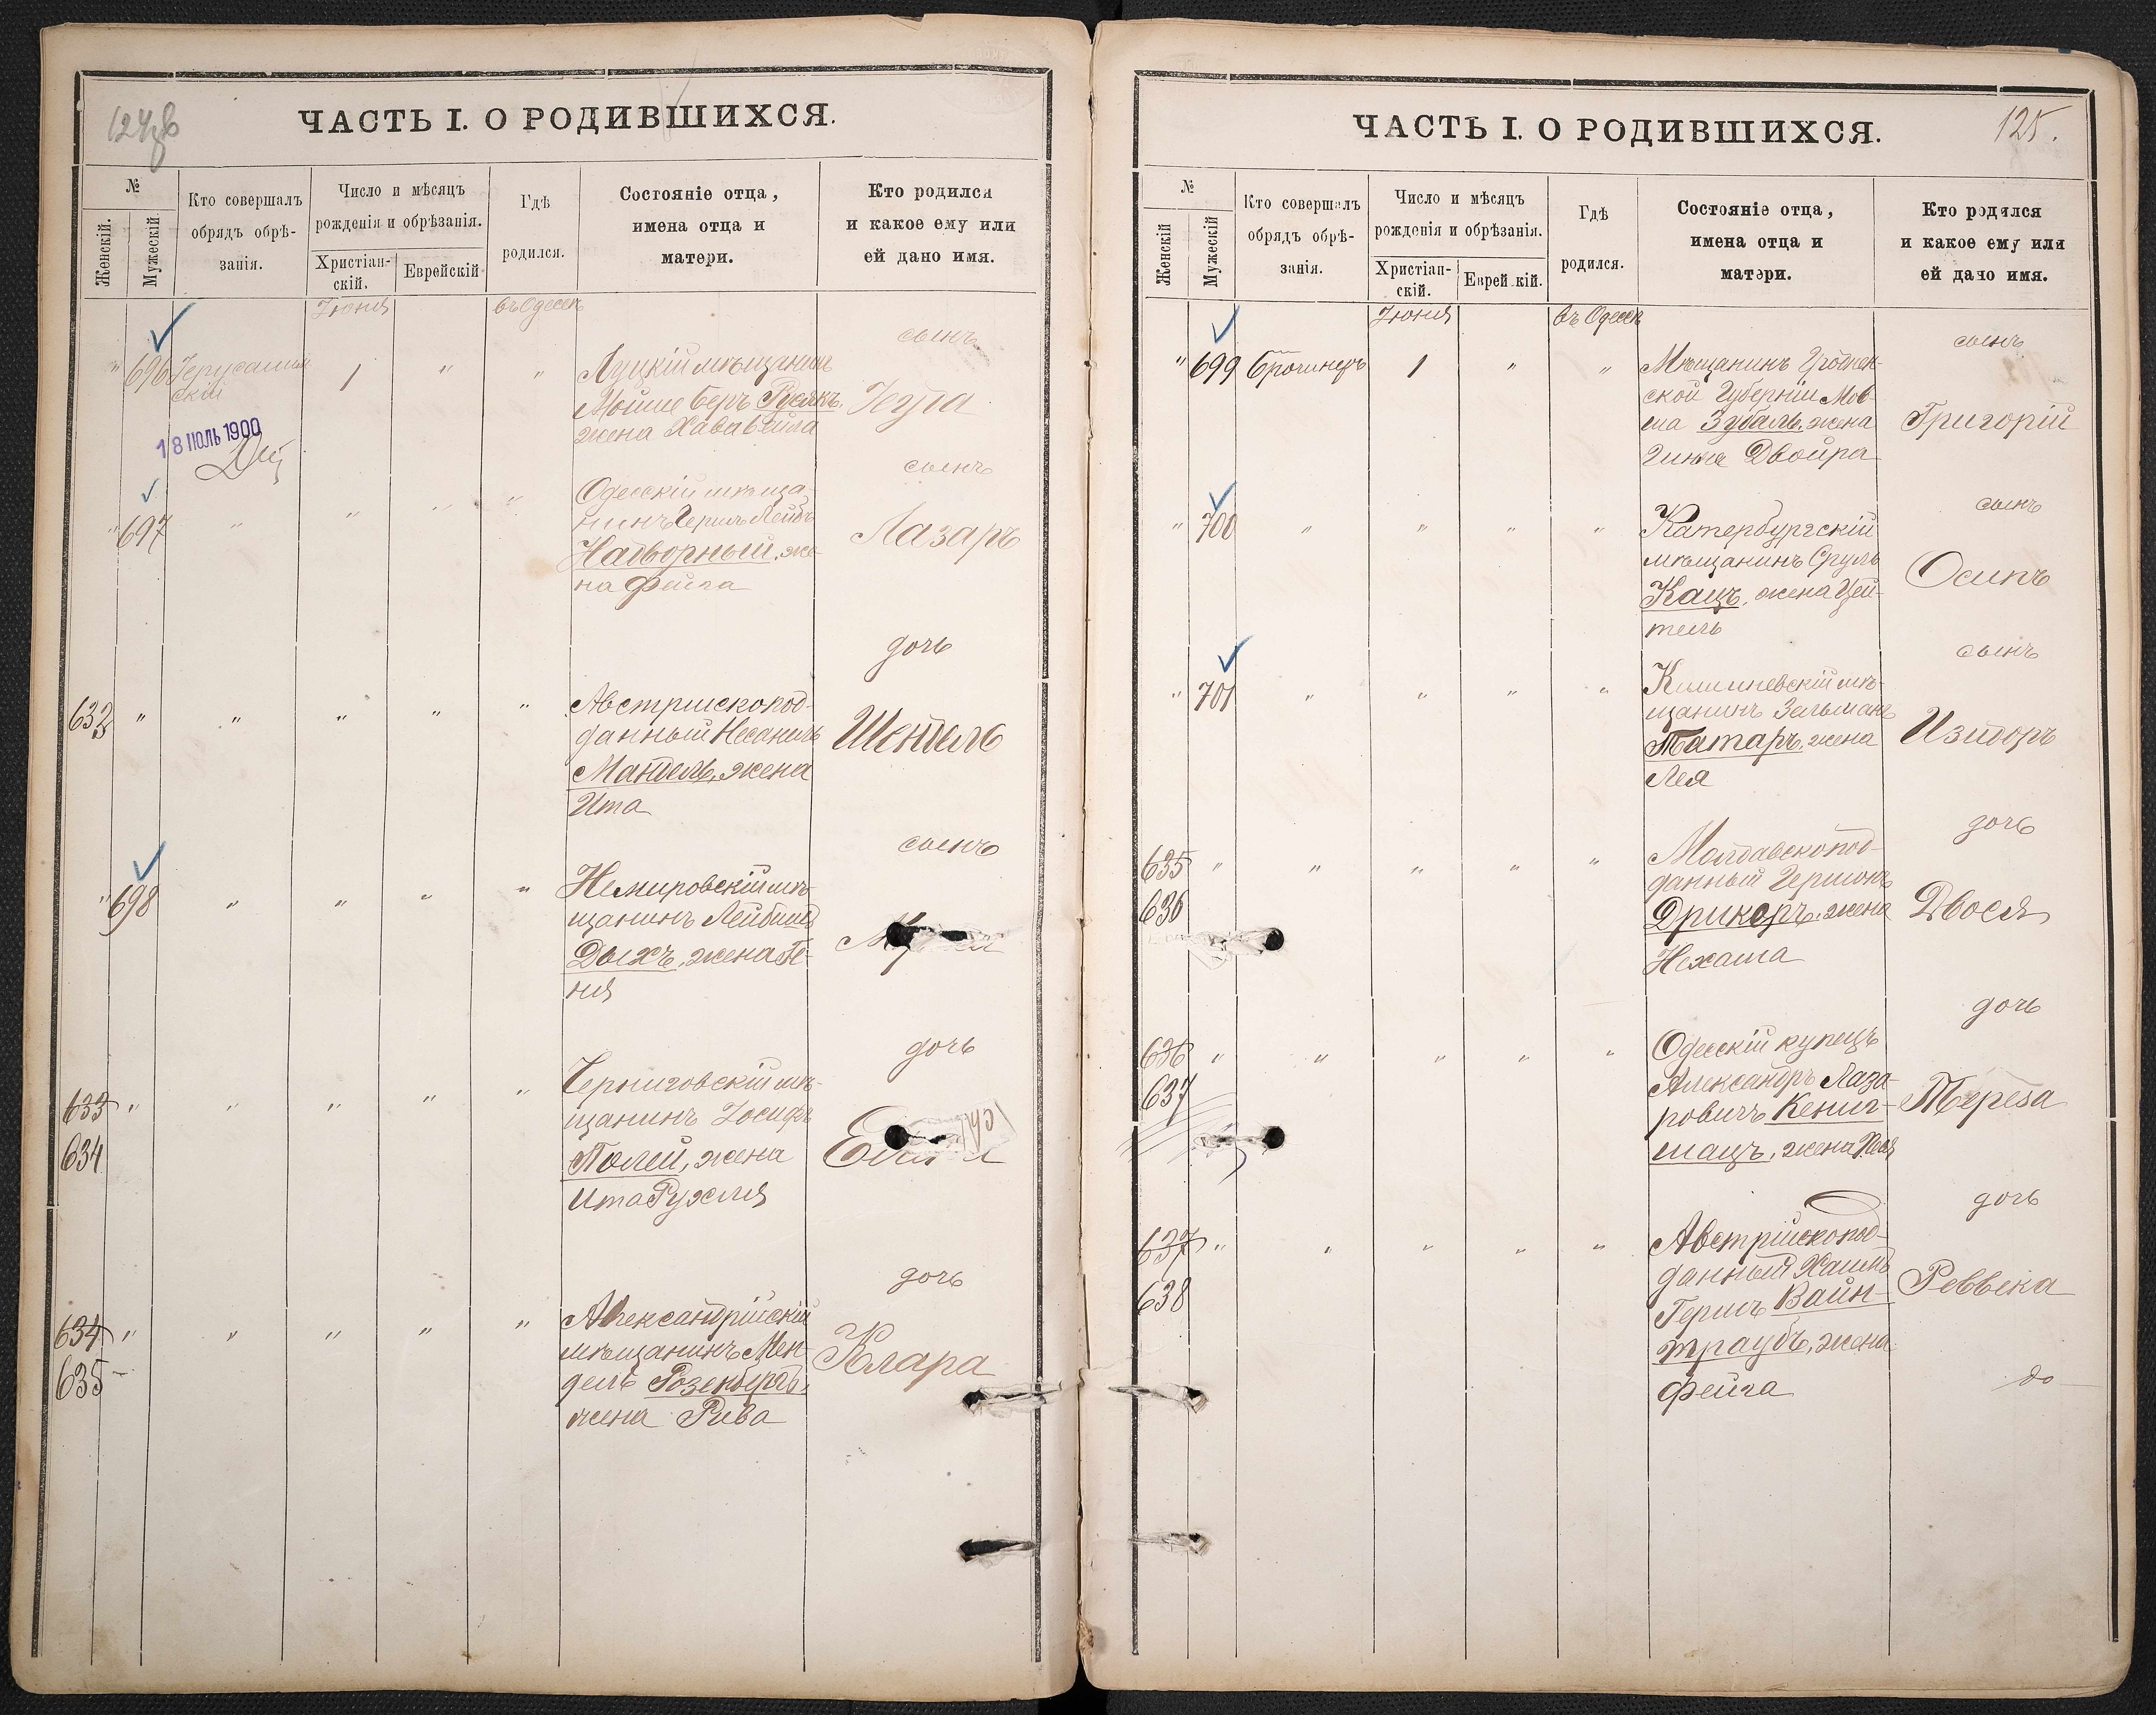 124 об
ЧАСТЬ I. О РОДИВШИХСЯ.
№
Женскій.
Мужескій
Кто совершалъ
обрядъ обрѣ-
занія.
Число и мѣсяцъ
рожденія и обрѣзанія.
Христіан-
скій.
Еврейскій
Гдѣ
родился.
Состояніе отца,
имена отца и
матери.
Кто родился
и какое ему или
ей дано имя.
Іюня
въ Одессѣ
сынъ
" 696 Іерусалим
скій
1 " "
Луцкій мѣщанинъ
Мойше Беръ Русякъ,
жена Хава Бейла
Іегуда
18 ІЮЛЬ 1900
сынъ
" 697 " " " "
Одесскій мѣща-
нинъ Гершъ Лейбъ
Надворный, же-
на Фейга
Лазарь
дочь
632 " " " " "
Австрійскопод-
данный
Мандель, жена
Ита
Шендель
сынъ
" 698 " " " "
Немировскій мѣ-
щанинъ Лейбишъ
Дыхъ, жена Ге-
ня
дочь
633 " " " " "
634
Черниговскій мѣ-
щанинъ Іосифъ
Полей, жена
Ита Рухля
дочь
634 " " " " "
635
Александрійскій
мѣщанинъ Мен-
дель Розенбергъ,
жена Рива
Клара
125.
ЧАСТЬ I. О РОДИВШИХСЯ.
№
Женскій
Мужескій
Кто совершалъ
обрядъ обрѣ-
занія.
Число и мѣсяцъ
рожденія и обрѣзанія.
Христіан-
скій.
Еврей кій.
Гдѣ
родился.
Состояніе отца,
имена отца и
матери.
Кто родился
и какое ему или
ей дано имя.
Іюня
въ Одессѣ
сынъ
" 699 Брогинецъ 1 " "
Мѣщанинъ Гроднен-
ской Губерніи Мов-
ша Зубаль, жена
Гинке Двойра
Григорій
сынъ
" 700 " " " "
Катербургскій
мѣщанинъ Сруль
Кацъ, жена Цей-
тель
Осипъ
сынъ
" 701 " " " "
Кишиневскій мѣ-
щанинъ Зельманъ
Татаръ, жена
Лея
Изидоръ
дочь
635 " " " " "
636
Молдавскопод-
данный Гершонъ
Дрикеръ, жена
Нехама
Двося
дочь
636 " " " " "
637
Одесскій купецъ
Александръ Лаза-
ровичъ Кениг-
шацъ, жена Хая
Тереза
дочь
637 " " " " "
638
Австрійскопод-
данный Хаимъ
Гершъ Вайн-
траубъ, жена
Фейга
Реввека